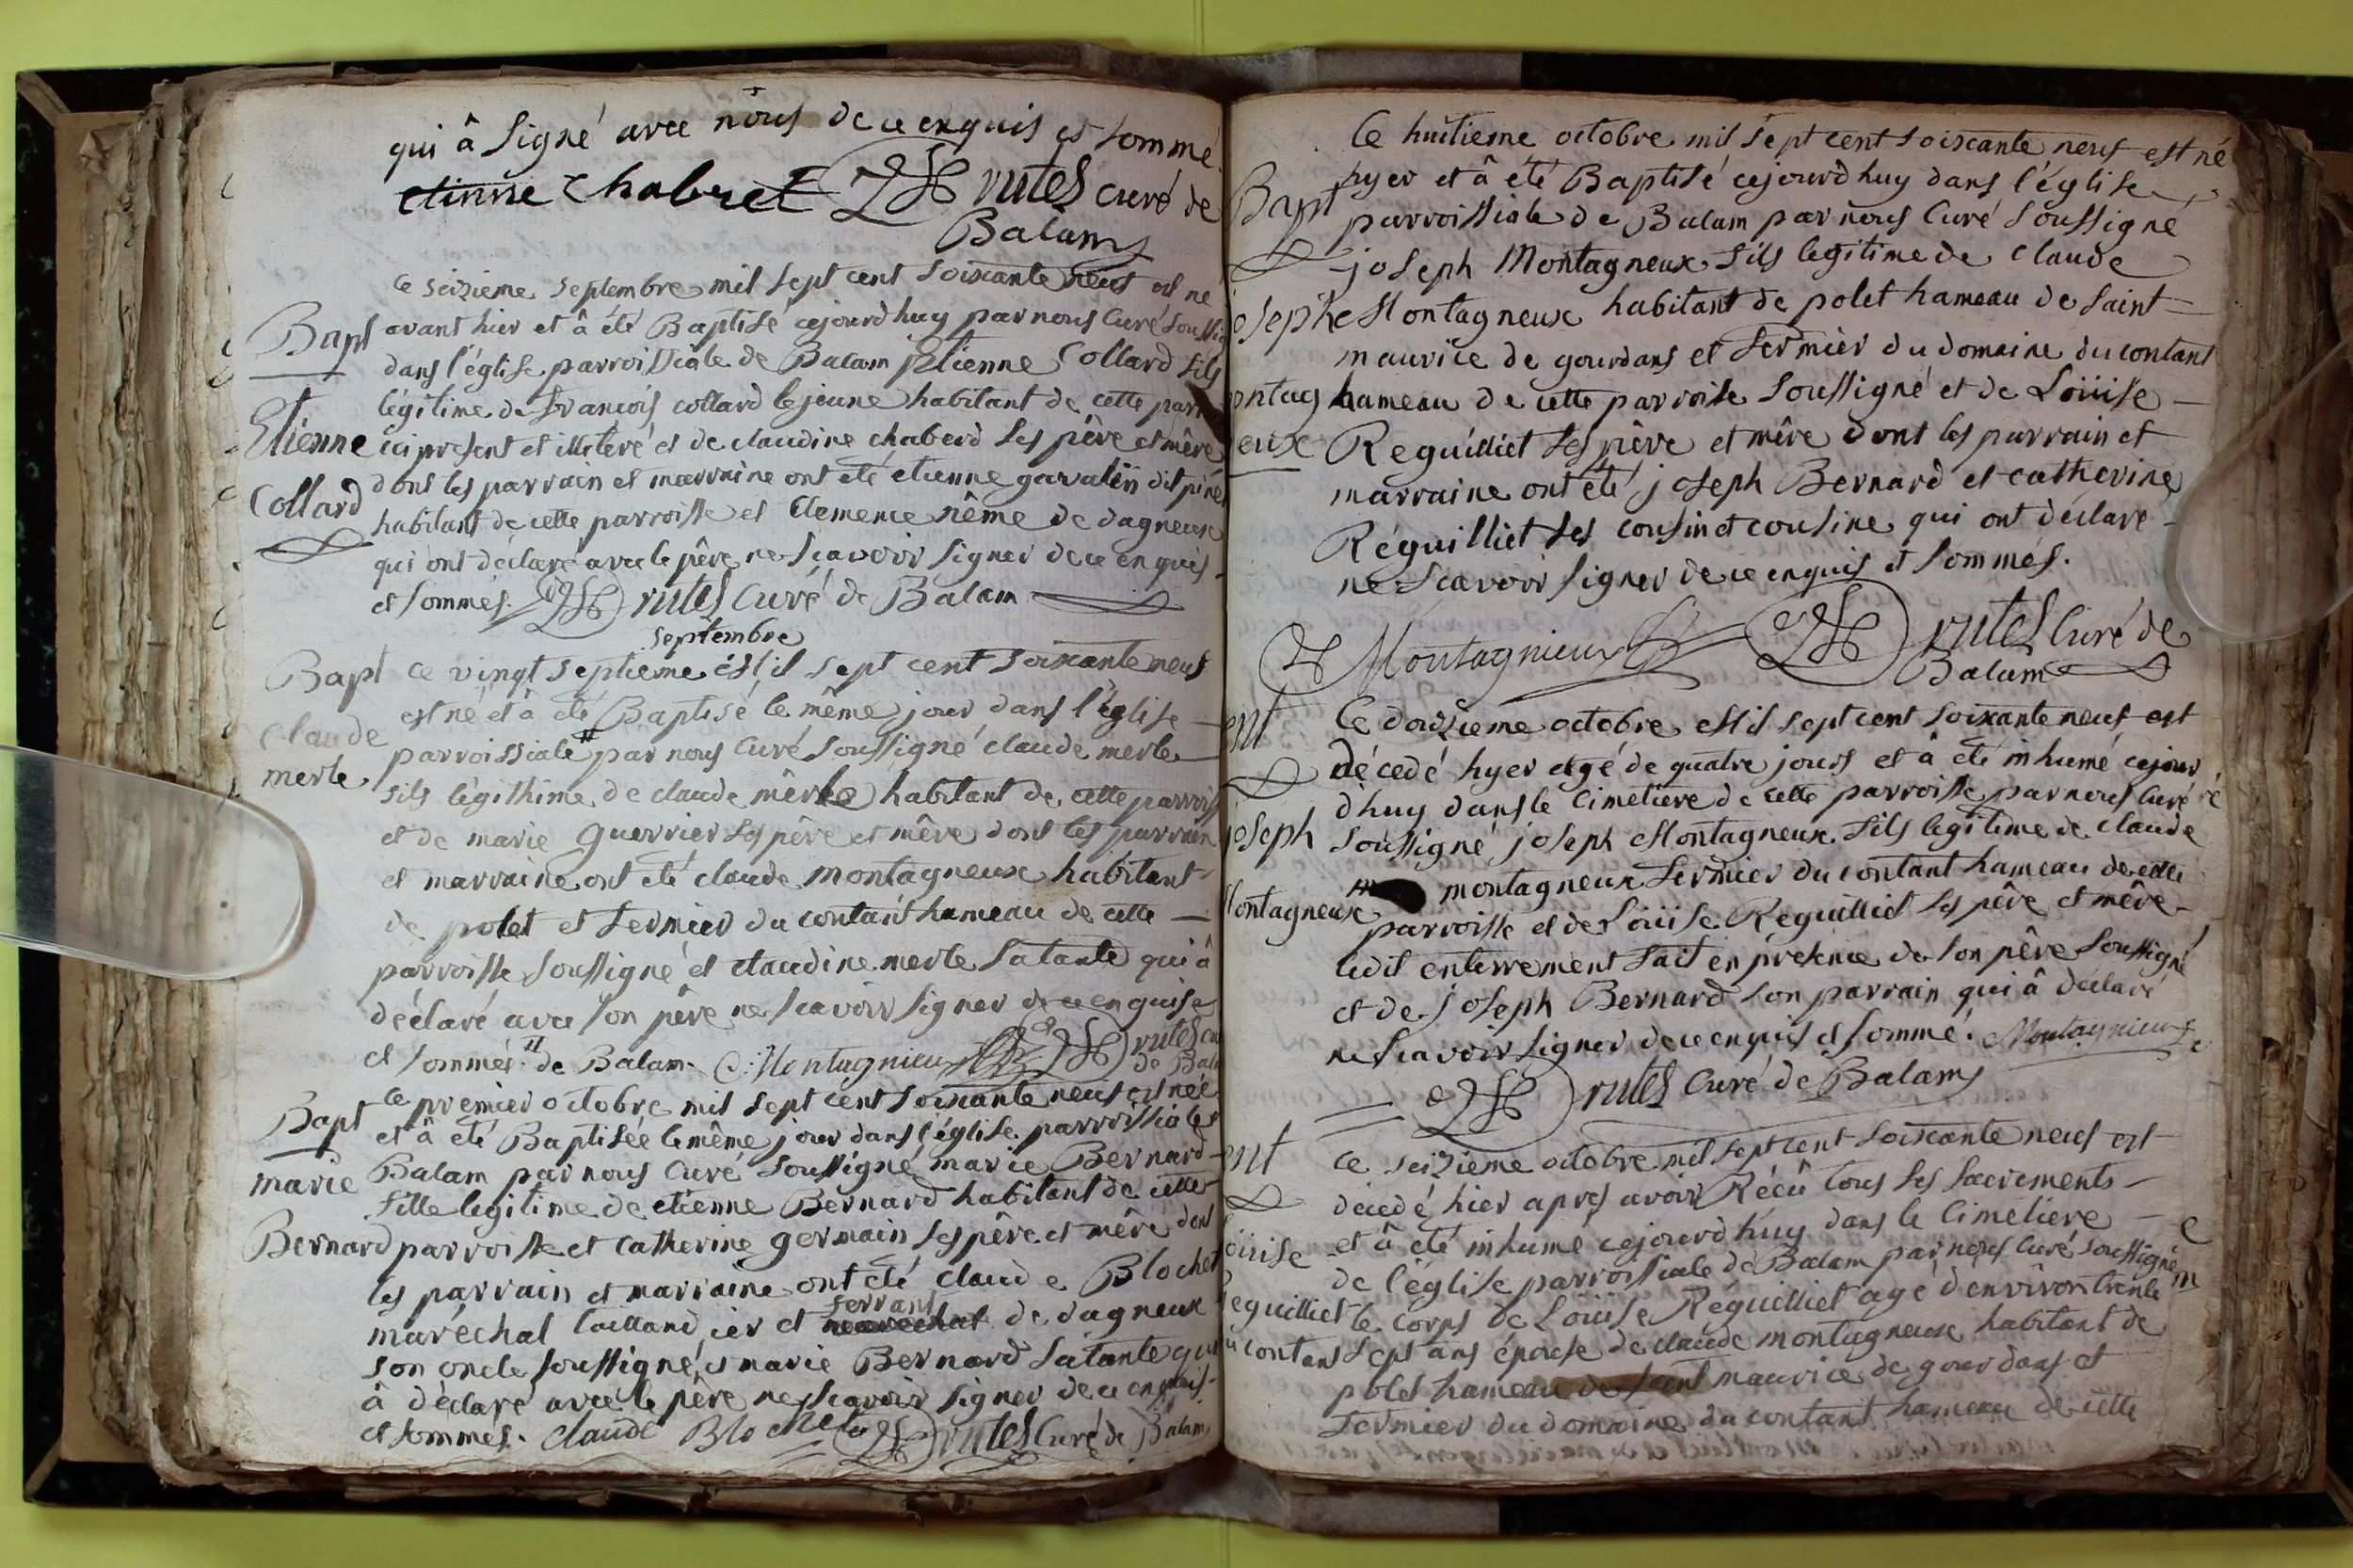 qui â signé avec nous de ce enquis et sommé
etinne Chabret rutes curé de
Balam
ce seizieme septembre mil sept cent soixante neuf est né
Bapt avant hier et â été Baptisé cejourd huy par nous Curé
dans l'église parroissiale de Balam Etienne Collard fils
légitime de francois collard le jeune habitant de cette
Etienne ici present et illiteré et de claudine chaberd ses pêre et mêre
dont les parrain et marraine ont été etienne garalin dit
Collard habitant de cette parroisse et Clemence nême de dagneux
qui ont déclaré avec le pêre ne scavoir signer de ce enquis
et sommés. rutes Curé de Balam
septembre
Bapt ce vingt septieme Mil sept cent soixante neuf
est né et â été Baptisé le même jour dans l'église
Claude parroissiale # par nous Curé soussigné claude merle
merle fils légithime de claude mêrle habitant de cette parroisse
et de marie Guerrier ses pêre et mêre dont les parrain
et marraine ont été claude montagneux habitant
de polet et fermier du contant hameau de cette
parroisse soussigné et claudine merle sa tante qui â
déclaré avec son pêre ne scavoir signer de ce enquise
et sommés. # de Balam. C: Montagnieux rutes
de Balam
ce premier octobre mil sept cent soixante neuf est née
Bapt et â été Baptisée le même jour dans l'église parroissiale
marie Balam par nous Curé soussigné marie Bernard
fille legitime de etienne Bernard habitant de cette
Bernard parroisse et catherine germain ses pêre et mêre dont
les parrain et marraine ont été claude Blochet
ferrant
maréchal taillandier et marechal de dagneux
son oncle soussigné, et marie Bernard sa tante qui
â déclaré avec le pêre ne scavoir signer de ce enquis
et sommés. claude Blochet rutes Curé de Balam
Ce huitieme octobre mil sept cent soixante neuf est né
hyer et â été Baptisé cejourd huy dans l'église
Bapt parroissiale de Balam par nous Curé soussigné
joseph Montagneux fils legitime de claude
oseph Montagneux habitant de polet hameau de saint
maurice de gourdans et fermier du domaine du contant
ontag hameau de cette parroisse soussigné et de Loüise
eux Reguilliet ses pêre et mêre dont les parrain et
marraine ont été joseph Bernard et catherine
Réguilliet ses cousin et cousine qui ont déclaré
ne scavoir signer de ce enquis et sommés.
Montagnieux rutes Curé de
Balam
ent Ce douzieme octobre Mil sept cent soixante neuf est
décedé hyer agé de quatre jours et â été inhumé cejour
d'huy dans le Cimetiere de cette parroisse par nous Curé
joseph soussigné joseph Montagneux fils legitime de claude
montagneux fermier du contant hameau de cette
Montagneux parroisse et de Loüise Reguilliet ses pêre et mêre
ledit enterrement fait en présence de son pêre soussigné
et de joseph Bernard son parrain qui â déclaré
ne scavoir signer de ce enquis et sommé. Montagnieux
rutes Curé de Balam
ent ce seizieme octobre mil sept cent soixante neuf est
décedé hier apres avoir Réçû tous ses sacrements
oüise et â été inhumé cejourd'huy dans le Cimetiere
de l'église parroissiale de Balam par nous Curé soussigné
Reguilliet le corps de Loüise Réguilliet agé d'environ trente
contant sept ans épouse de claude montagneux habitant de
polet hameau de saint maurice de gourdans et
fermier du domaine du contant hameau de cette